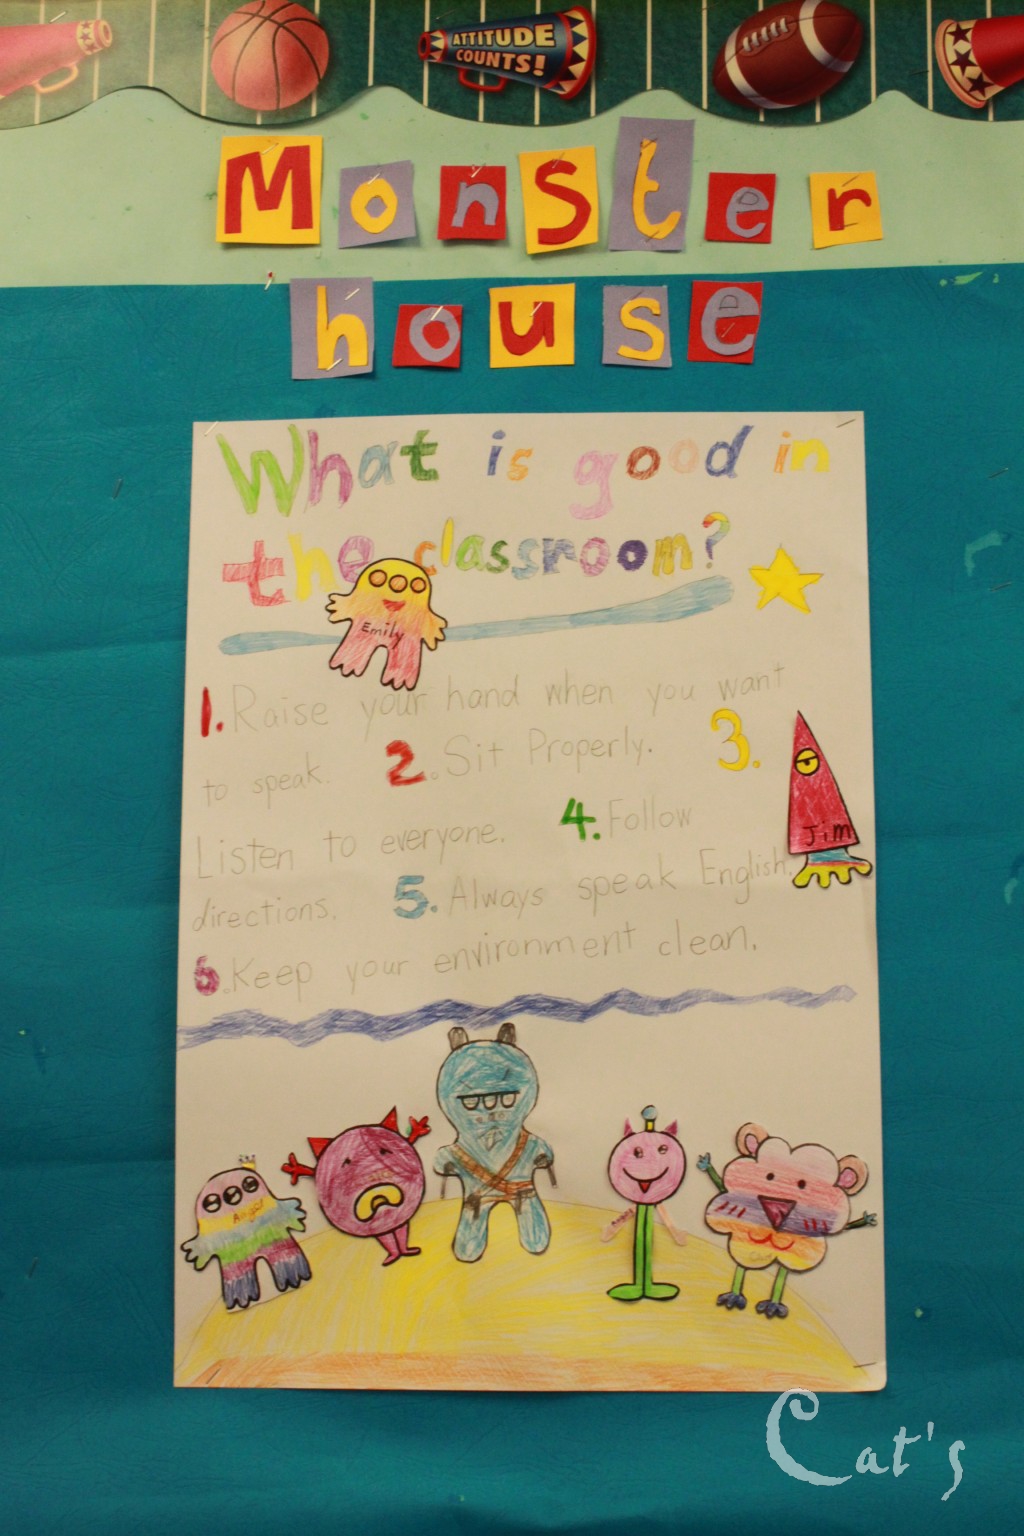 ATTITUDE
COUNTS!
Monster
house
What is good in
the classroom?
Emily
1. Raise your hand when you want
to speak. 2. Sit Properly. 3.
Jim
Listen to everyone. 4. Follow
directions. 5. Always speak English.
6. Keep your environment clean.
Cat's